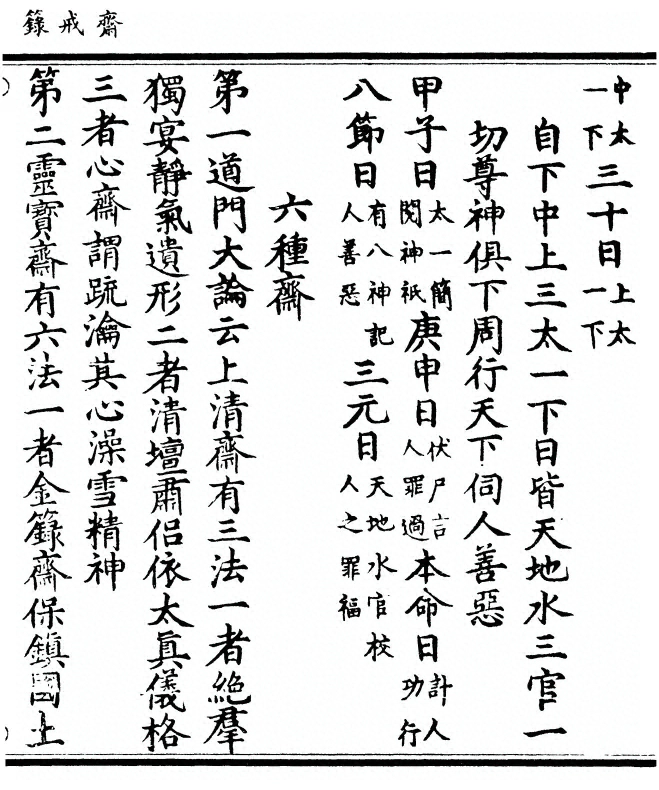 齋戒籙
中太一下三十日上太一下
自下中上三太一下日皆天地水三官一
切尊神俱下周行天下伺人善惡
甲子日太一簡閱神祇庚申日伏尸言人罪過本命日計人功行
八節日有八神記人善惡三元日天地水官校人之罪福
六種齋
第一道門大論云上清齋有三法一者絶羣
獨宴靜氣遺形二者清壇肅侣依太眞儀格
三者心齋謂疏瀹其心澡雪精神
第二靈寶齋有六法一者金籙齋保鎮國土